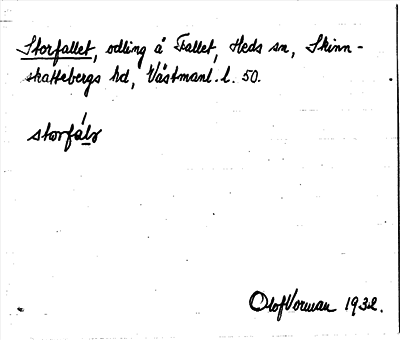 Storfallet, odling å Fallet, Heds sn, Skinn-
skattebergs hd, Västmanl. l. 50.
storfálɘ
Olof Vorman 1932.